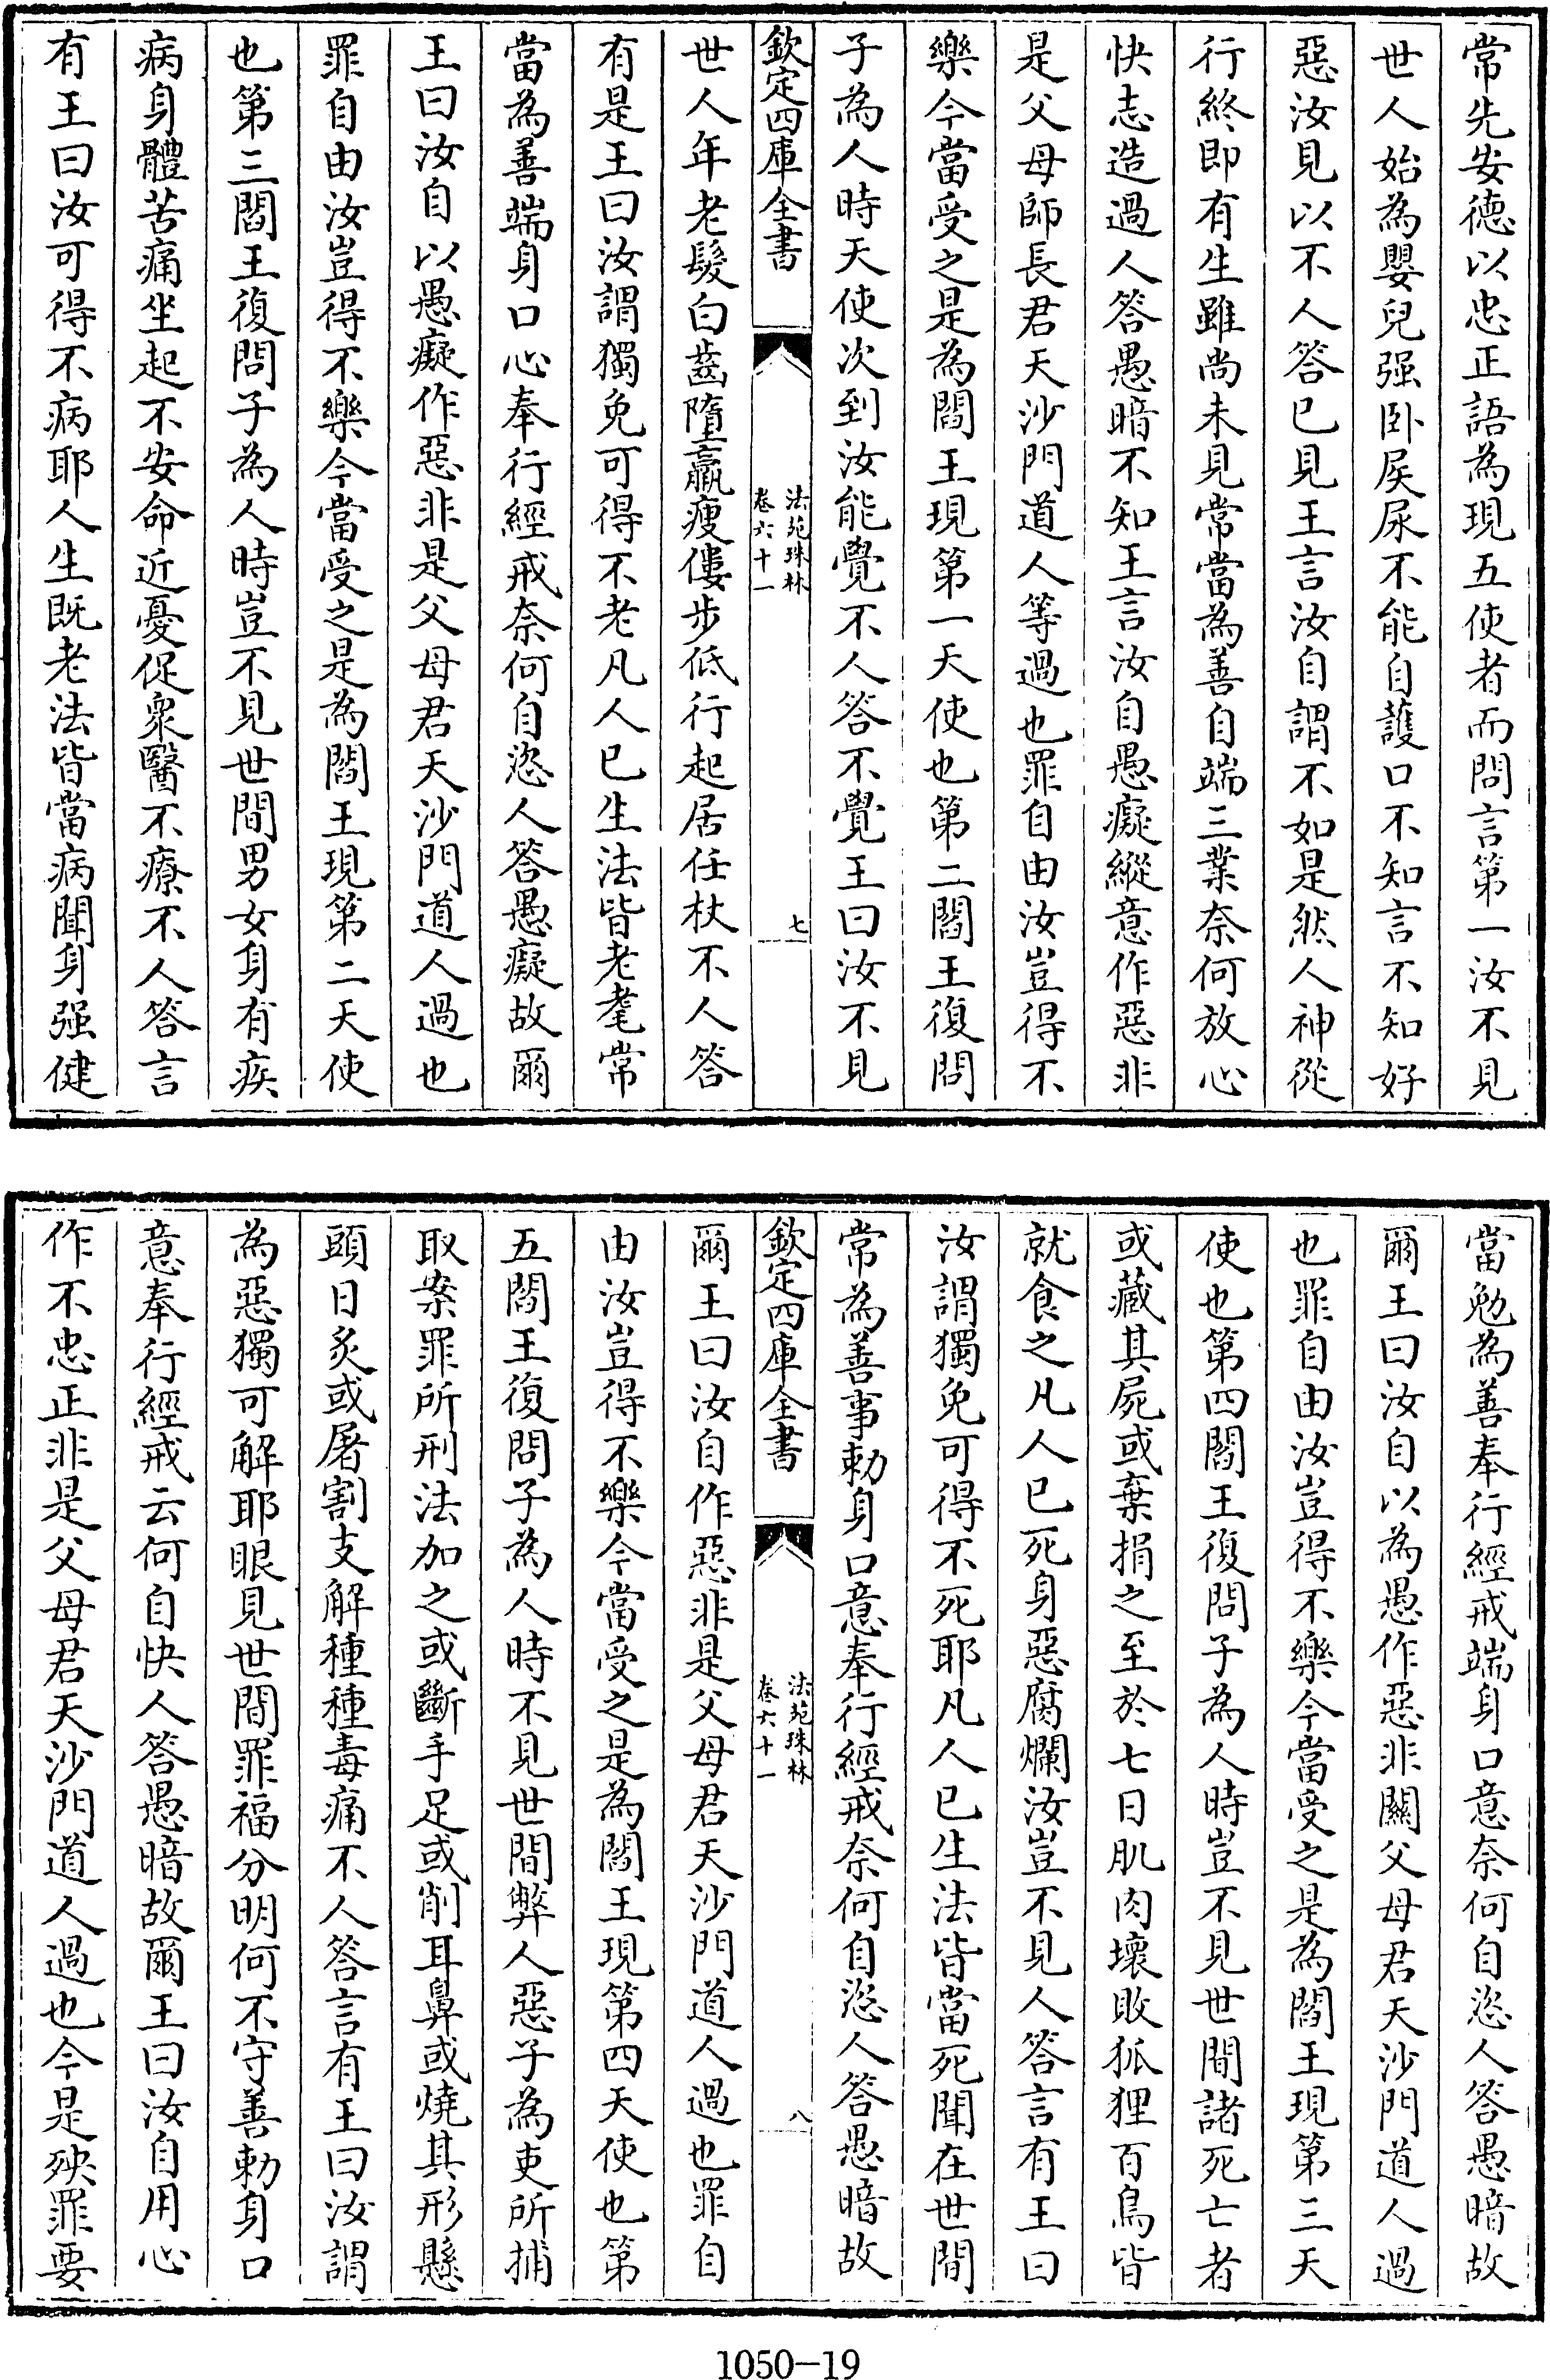 常先安德以忠正語為現五使者而問言第一汝不見
世人始為嬰兒强卧屎尿不能自護口不知言不知好
惡汝見以不人答已見王言汝自謂不如是然人神從
行終即有生雖尚未見常當為善自端三業奈何放心
快志造過人答愚暗不知王言汝自愚癡縱意作惡非
是父母師長君天沙門道人等過也罪自由汝豈得不
樂今當受之是為閻王現第一天使也第二閻王復問
子為人時天使次到汝能覺不人答不覺王曰汝不見
欽定四庫全書
法苑珠林
卷六十一
七
世人年老髮白齒墮羸瘦僂步低行起居任杖不人答
有是王曰汝謂獨免可得不老凡人已生法皆老耄常
當為善端身口心奉行經戒奈何自恣人答愚癡故爾
王曰汝自以愚癡作惡非是父母君天沙門道人過也
罪自由汝豈得不樂今當受之是為閻王現第二天使
也第三閻王復問子為人時豈不見世間男女身有疾
病身體苦痛坐起不安命近憂促衆醫不療不人答言
有王曰汝可得不病耶人生既老法皆當病聞身强健
當勉為善奉行經戒端身口意奈何自恣人答愚暗故
爾王曰汝自以為愚作惡非關父母君天沙門道人過
也罪自由汝豈得不樂今當受之是為閻王現第三天
使也第四閻王復問子為人時豈不見世間諸死亡者
或藏其屍或棄捐之至於七日肌肉壞敗狐狸百鳥皆
就食之凡人已死身惡腐爛汝豈不見人答言有王曰
汝謂獨免可得不死耶凡人已生法皆當死聞在世間
常為善事勅身口意奉行經戒奈何自恣人答愚暗故
欽定四庫全書
法苑珠林
卷六十一
八
爾王曰汝自作惡非是父母君天沙門道人過也罪自
由汝豈得不樂今當受之是為閻王現第四天使也第
五閻王復問子為人時不見世間弊人惡子為吏所捕
取案罪所刑法加之或斷手足或削耳鼻或燒其形懸
頭日炙或屠割支解種種毒痛不人答言有王曰汝謂
為惡獨可解耶眼見世間罪福分明何不守善勅身口
意奉行經戒云何自快人答愚暗故爾王曰汝自用心
作不忠正非是父母君天沙門道人過也今是殃罪要
1050-19